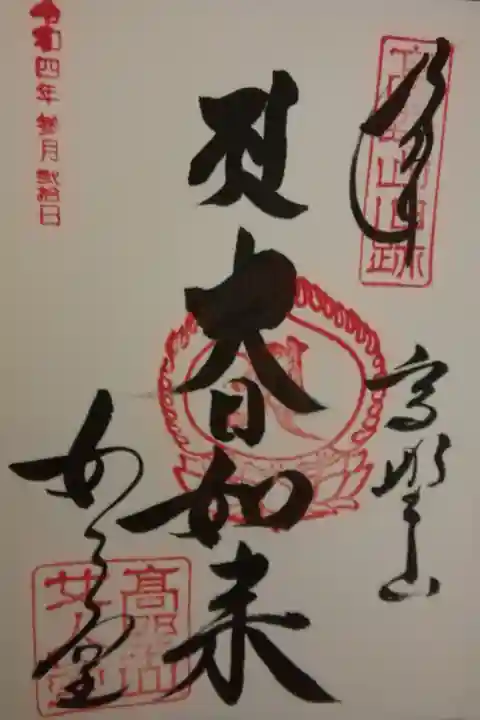 奉拝
高野山
大日如来
女人堂
令和四年参月弐拾日
高野山
女人堂